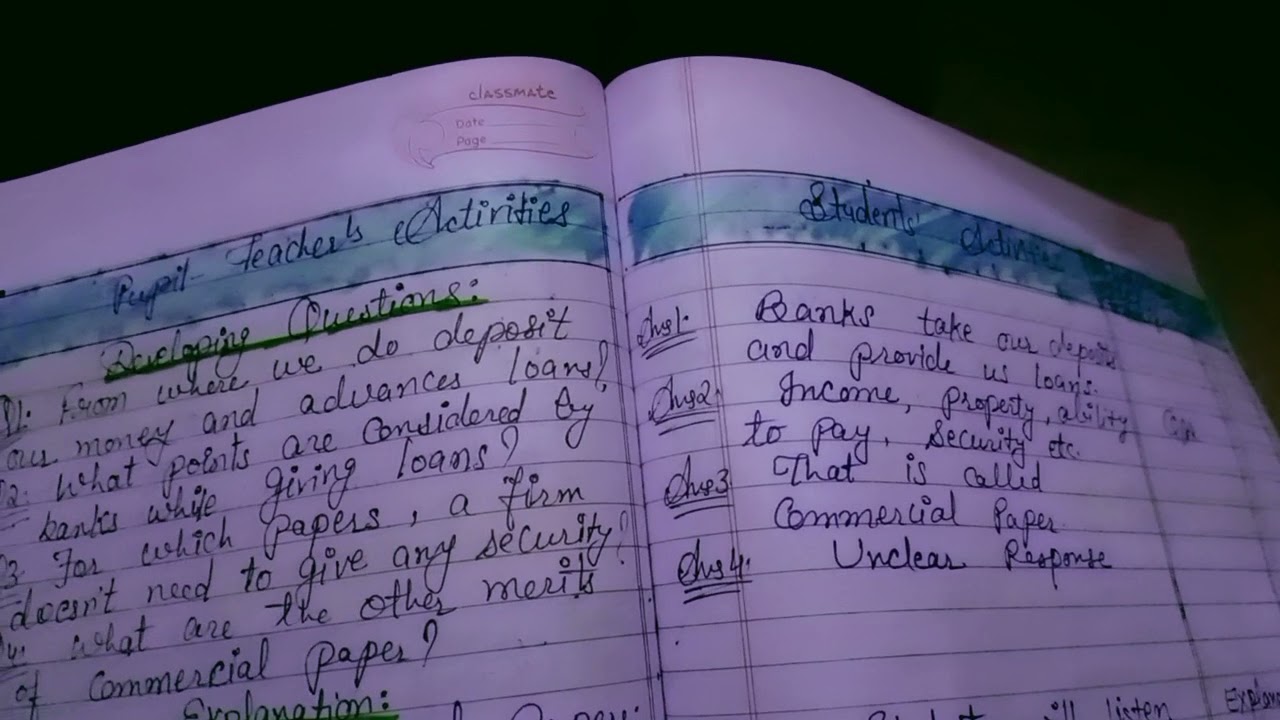 classmate
Date
Page
Pupil-Teacher's Activities
Developing Questions:
Q1. From where we do deposit
our money and advances loans?
2. What points are considered by
banks while giving loans?
3. For which papers, a firm
doesn't need to give any security?
4. What are the other merits
of Commercial paper?
Explanation:
Students' Activities
Ans1. Banks take our deposits
and provide us loans.
Ans2. Income, property, ability
to pay, security etc.
Ans3 That is called
Commercial Paper.
Ans4. Unclear Response
will listen